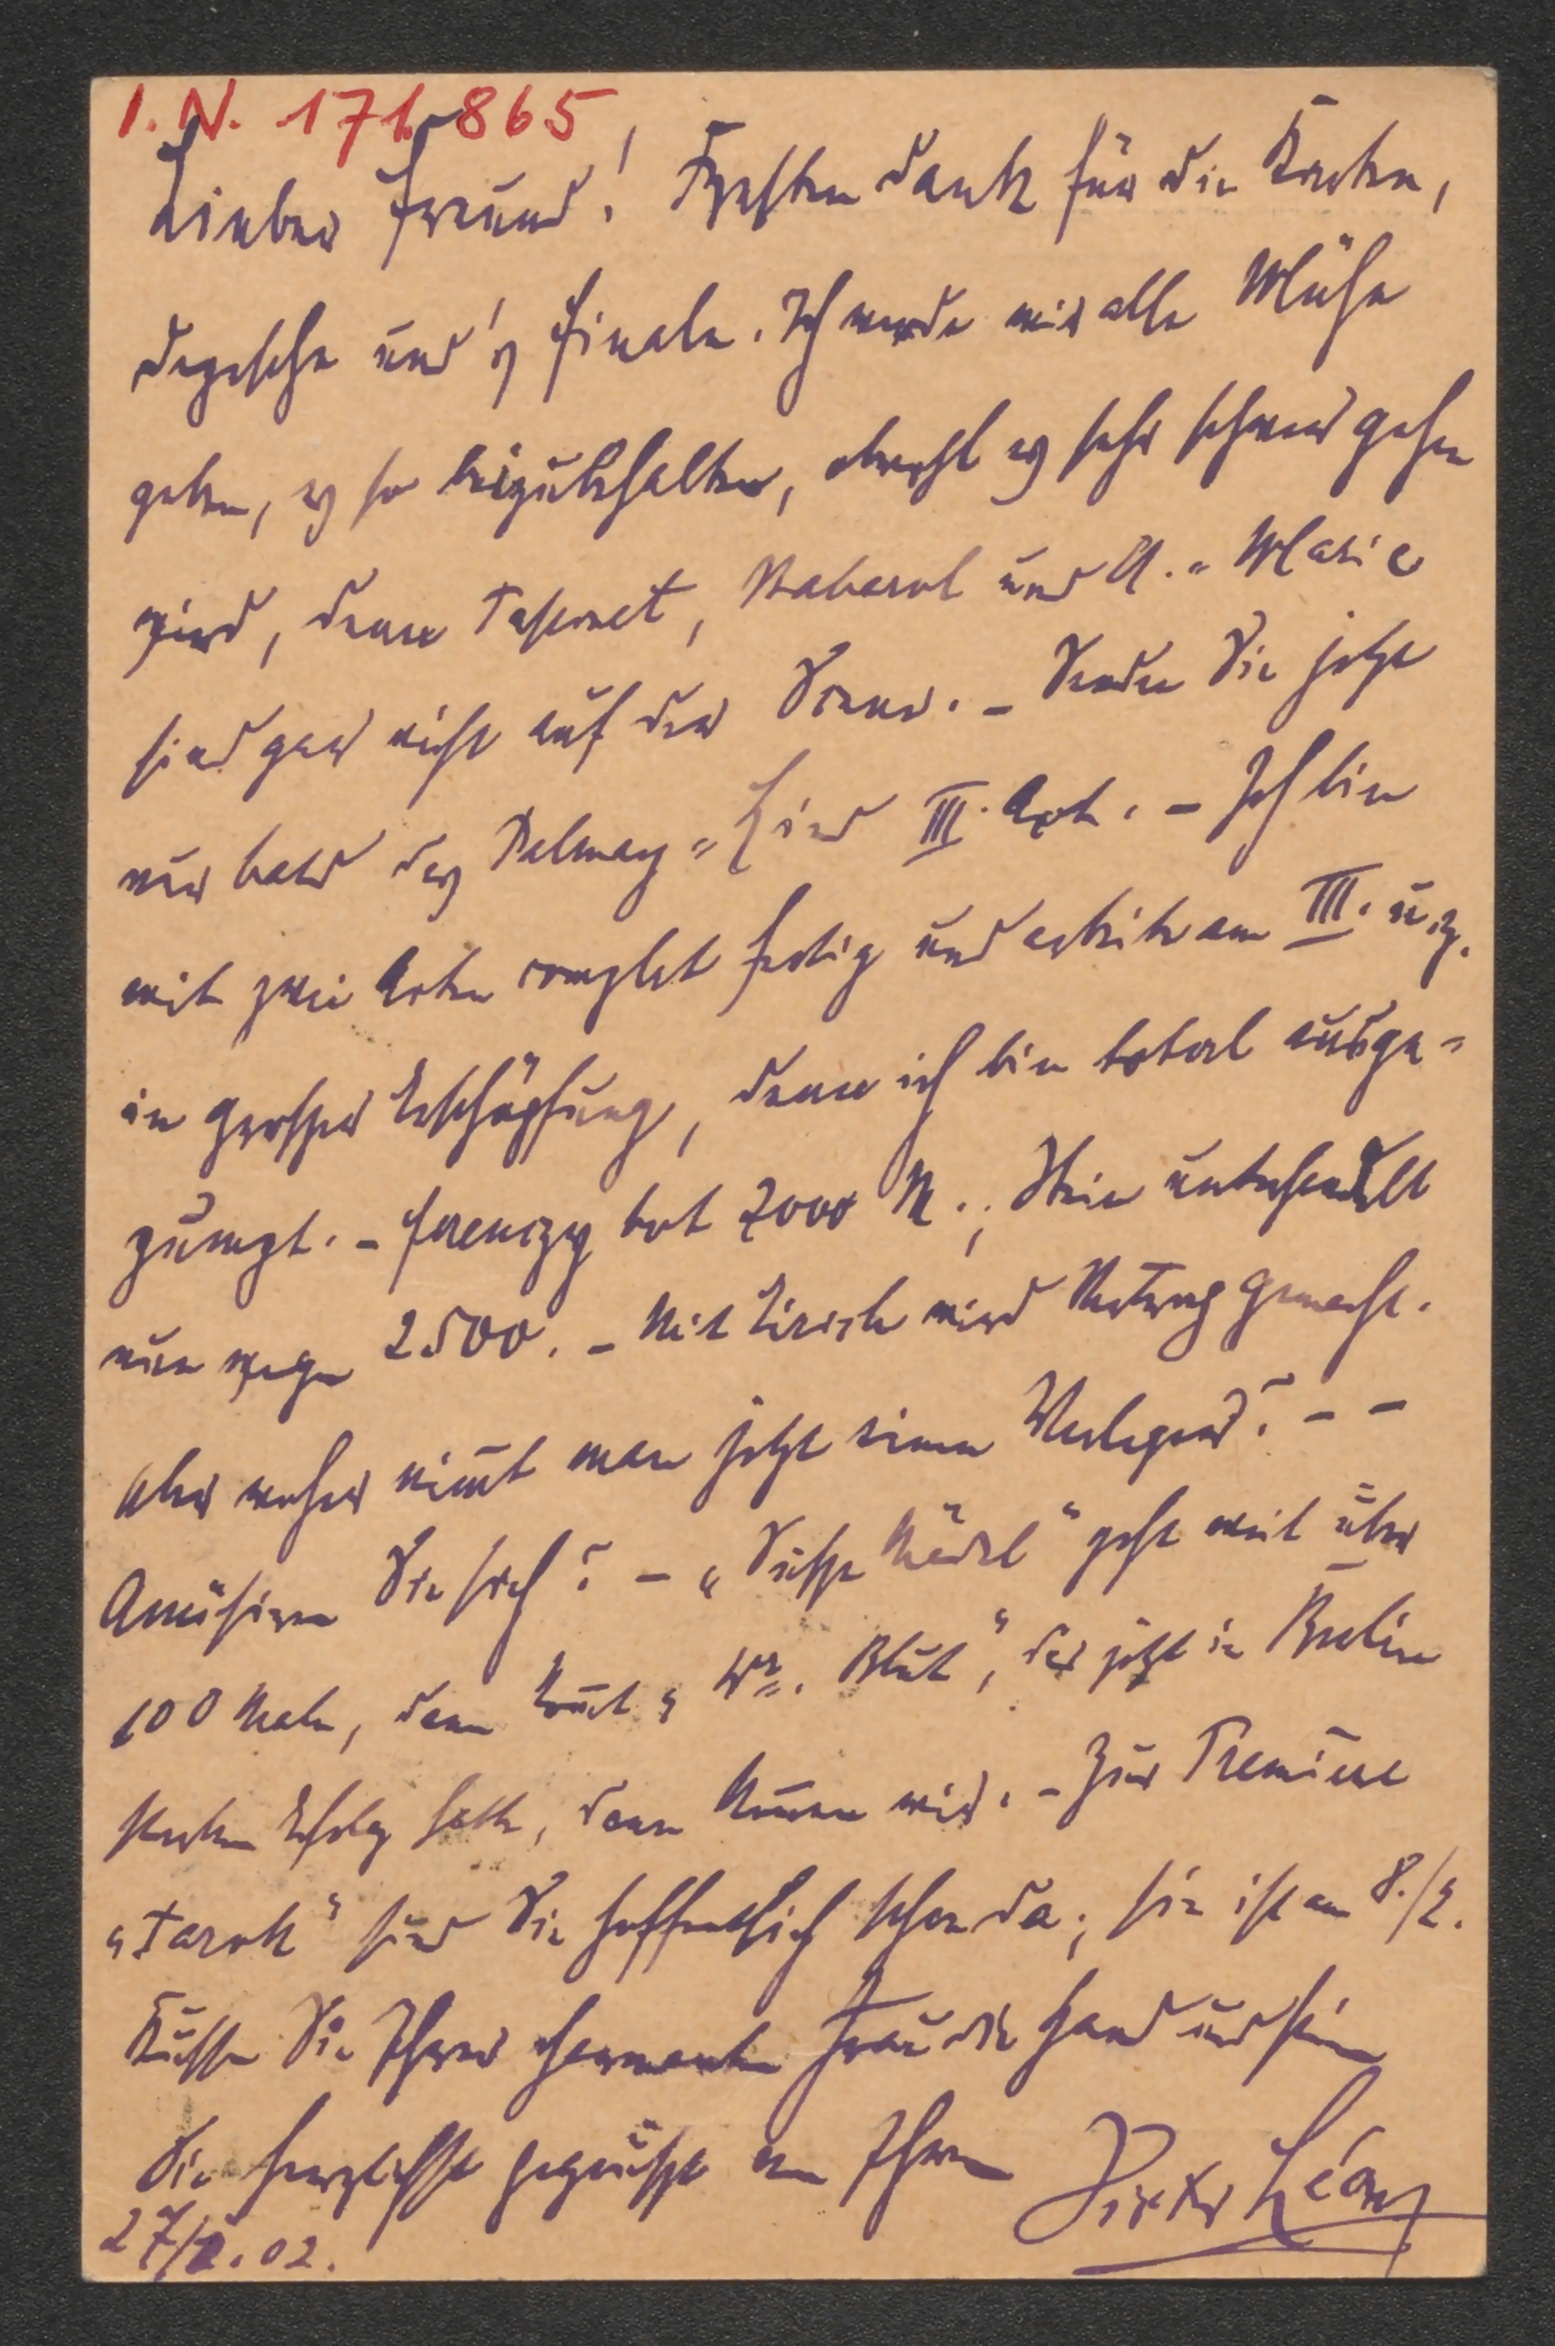 I.N. 171.865
Lieber Freund! Besten Dank für die Karten,
Depesche und's Finale. Ich werde mir alle Mühe
geben, es so beizubehalten, obwohl es sehr schwer gehen
wird, denn Tasquet, und A.-Marie
sind gar nicht auf der Scene. – Senden Sie jetzt
nur bald das Palmay-Lied III. Act. – Ich bin
mit zwei Acten complet fertig und arbeite am III. u. z.
in grosser Erschöpfung, denn ich bin total ausge-
pumpt. – Ferenczy bot 2000 M.; Stein unterhandelt
nun wegen 2500. – Mit Eirich wird Vertrag gemacht.
Aber woher nimt man jetzt einen Verleger? – –
Amüsiren Sie sich? – „Süsse Mädel“ geht weit über
100 Male, dann komt „Wr. Blut“, das jetzt in Berlin
starken Erfolg hatte, dann kommen wir. – Zur Premiere
„Tarok“ sind Sie hoffentlich schon da; sie ist am 8./2.
Küssen Sie Ihrer charmanten Frau die Hand und sein
Sie herzlichst gegrüsst von Ihrem Victor Léon
27/1.02.